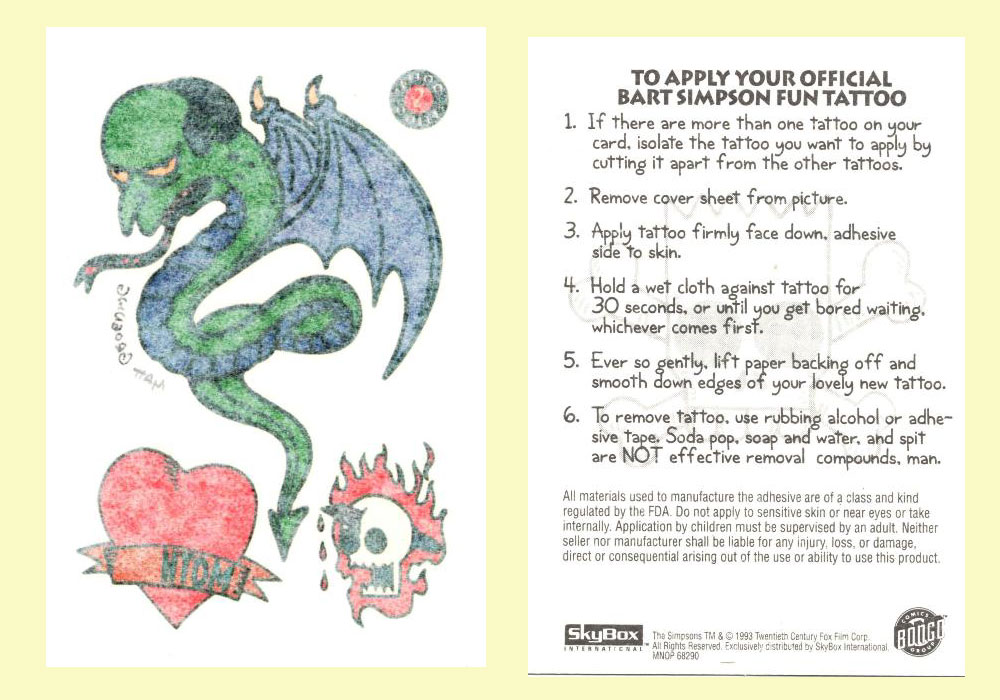 2
©BOENING
MATT
MOM!
TO APPLY YOUR OFFICIAL
BART SIMPSON FUN TATTOO
1. If there are more than one tattoo on your
card, isolate the tattoo you want to apply by
cutting it apart from the other tattoos.
2. Remove cover sheet from picture.
3. Apply tattoo firmly face down, adhesive
side to skin.
4. Hold a wet cloth against tattoo for
30 seconds, or until you get bored waiting,
whichever comes first.
5. Ever so gently, lift paper backing off and
smooth down edges of your lovely new tattoo.
6. To remove tattoo, use rubbing alcohol or adhe-
sive tape. Soda pop, soap and water, and spit
are NOT effective removal compounds, man.
All materials used to manufacture the adhesive are of a class and kind
regulated by the FDA. Do not apply to sensitive skin or near eyes or take
internally. Application by children must be supervised by an adult. Neither
seller nor manufacturer shall be liable for any injury, loss, or damage,
direct or consequential arising out of the use or ability to use this product.
SkyBox™
INTERNATIONAL
The Simpsons TM & © 1993 Twentieth Century Fox Film Corp.
All Rights Reserved. Exclusively distributed by SkyBox International.
MNOP 68290
COMICS
BONGO
GROUP